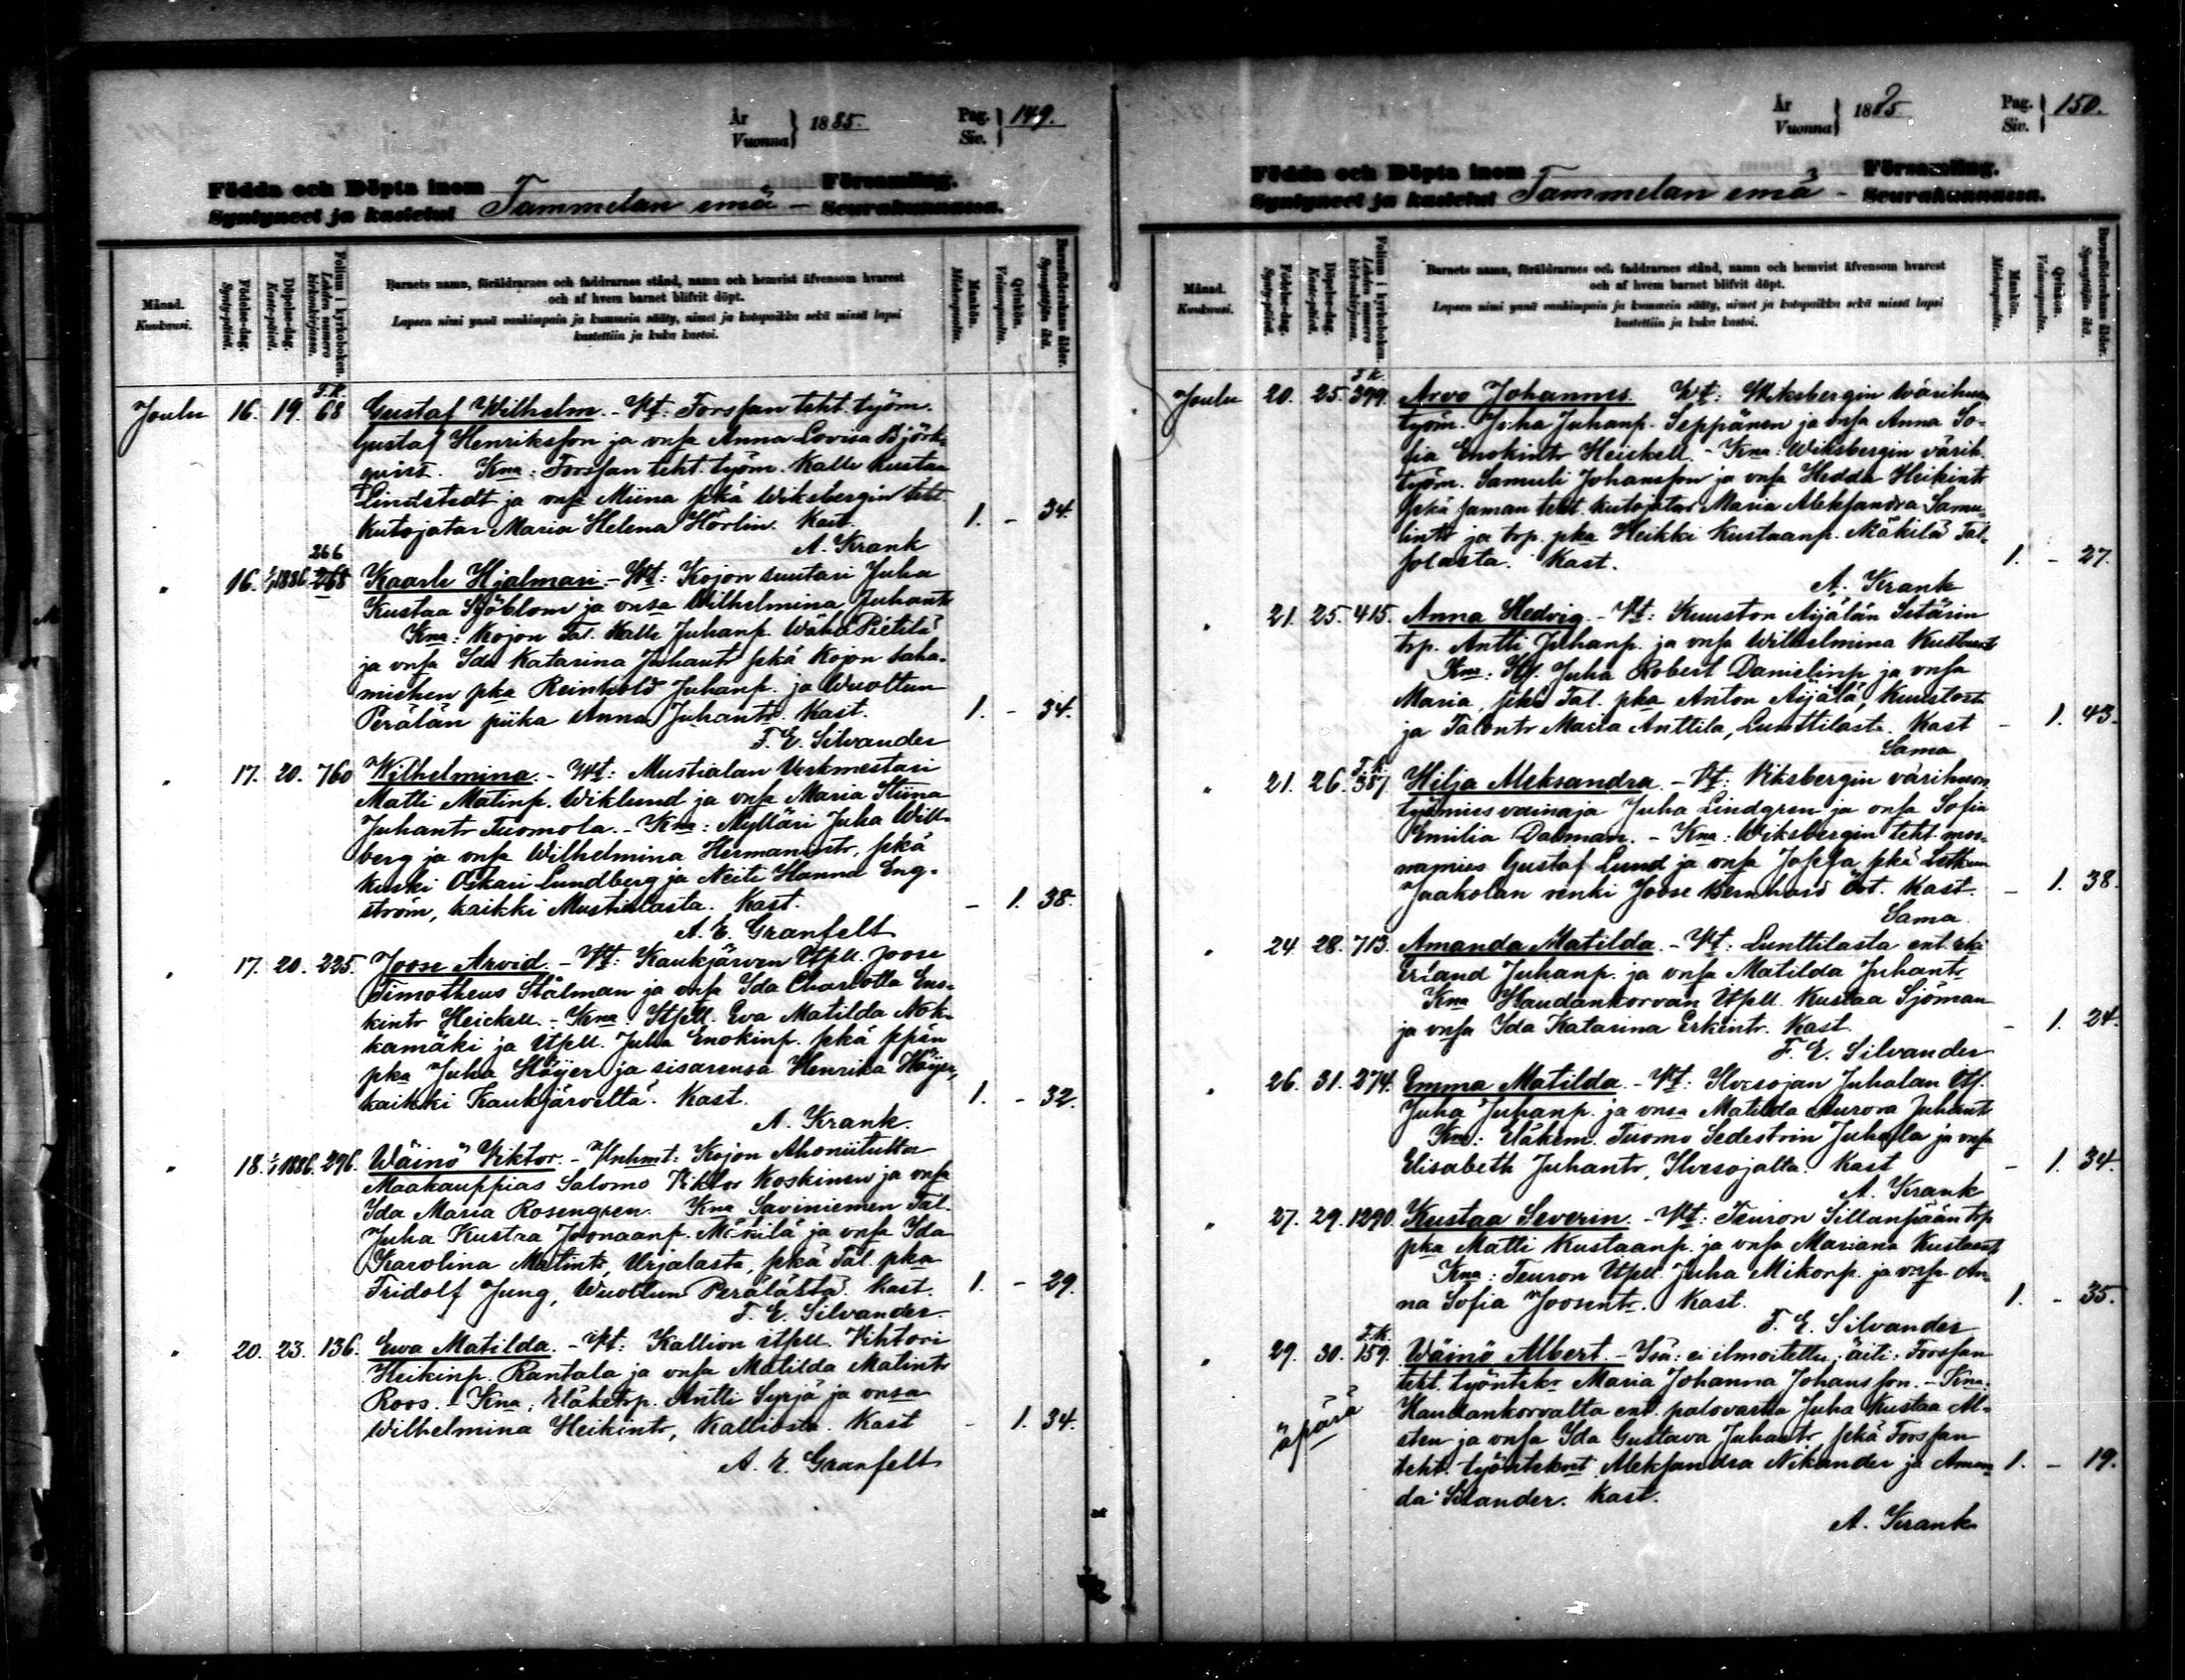 År
Vuonna } 1885.
Pag.
Siv. } 149.
Födda och Döpta inom
Syntyneet ja kastetut Tammelan emä - Församling.
Seurakunnassa.
Månad.
Kuukausi.
Födelse-dag.
Synty-päivä.
Döpelse-dag.
Kaste-päivä.
Folium i kyrkoboken.
Lehden numero kirkonkirjassa.
Barnets namn, föräldrarnes och faddrarnes stånd, namn och hemvist äfvensom hvarest
och af hvem barnet blifvit döpt.
Lapsen nimi ynnä vanhimpain ja kummein sääty, nimet ja kotopaikka sekä missä lapsi
kastettiin ja kuka kastoi.
Mankön.
Miehenpuolta.
Qvinkön.
Vaimonpuolta.
Barnaföderskans ålder.
Synnyttäjän ikä.
Joulu 16. 19. F.k. 68 Gustaf Wilhelm. - Wt: Forssan teht. työm.
Gustaf Henriksson ja vnsa Anna Lovisa Björk-
qvist. Kna: Forssan teht. työm. Kalle Kustaa
Lindstedt ja vnsa Miina sekä Wiksbergin teht
kutojatar Maria Helena Hörlin. Kast. 1. - 34.
A. Krank
" 16. 1/1 1886 266 268 Kaarle Hjalmari. - Wt: Kojon suutari Juha
Kustaa Sjöblom ja vnsa Wilhelmina Juhantr
Kna: Kojon Tal. Kalle Juhanp. Wähä Pietilä
ja vnsa Ida Katarina Juhantr sekä Kojon saha-
miehen pka Reinhold Juhanp. ja Wuoltun
Perälän piika Anna Juhantr. Kast. 1. - 34.
F. E. Silvander
" 17. 20. 760 Wilhelmina. - Wt: Mustialan Verkmestari
Matti Matinp. Wiklund ja vnsa Maria Stiina
Juhantr Tuomola. - Kna: Mylläri Juha Will-
berg ja vnsa Wilhelmina Hermanintr, sekä
kuski Oskari Lundberg ja Neiti Hanna Eng-
ström, kaikki Mustialasta. Kast. - 1. 38.
A. E. Granfelt
" 17. 20. 225. Joose Arvid. - Wt: Kaukjärven Itsell. Joose
Timotheus Stålman ja vnsa Ida Charlotta Eno-
kintr Heickell. - Kna Itsell. Eva Matilda Nok-
kamäki ja Itsell. Juha Enokinp. sekä ppän
pka Juha Höijer ja sisarensa Henrika Höijer,
kaikki Kaukjärveltä. Kast. 1. - 32.
A. Krank.
" 18. 1/1 1886. 296. Wäinö Viktor. - Wnhmt: Kojon Ahoniitulta
Maakauppias Salomo Viktor Koskinen ja vnsa
Ida Maria Rosengren. Kna Saviniemen Tal.
Juha Kustaa Joonaanp. Mäkilä ja vnsa Ida
Karolina Matintr, Urjalasta, sekä Tal. pka
Fridolf Jung, Wuoltun Perälästä. Kast. 1. - 29.
F. E. Silvander.
" 20. 23. 136. Ewa Matilda. - Wt: Kallion itsell. Vihtori
Heikinp. Rantala ja vnsa Matilda Matintr
Roos. - Kna: Eläketrp. Antti Syrjä ja vnsa
Wilhelmina Heikintr, Kalliosta. Kast - 1. 34.
A. E. Granfelt
År
Vuonna } 1885.
Pag.
Siv. } 150.
Födda och Döpta inom
Syntyneet ja kastetut Tammelan emä - Församling.
Seurakunnassa.
Månad.
Kuukausi.
Födelse-dag.
Synty-päivä.
Döpelse-dag.
Kaste-päivä.
Folium i kyrkoboken.
Lehden numero kirkonkirjassa.
Barnets namn, föräldrarnes och faddrarnes stånd, namn och hemvist äfvensom hvarest
och af hvem barnet blifvit döpt.
Lapsen nimi ynnä vanhimpain ja kummein sääty, nimet ja kotopaikka sekä missä lapsi
kastettiin ja kuka kastoi.
Mankön.
Miehenpuolta.
Qvinkön.
Vaimonpuolta.
Barnaföderskans ålder.
Synnyttäjän ikä.
Joulu 20. 25. F.k. 399. Arvo Johannes. Wt: Wiksbergin värihuon
työm. Juha Juhanp. Seppänen ja vnsa Anna So-
fia Enokintr Heickell. - Kna: Wiksbergin värih.
työm. Samuli Johansson ja vnsa Hedda Heikintr
sekä saman teht. kutojatar Maria Aleksandra Samu-
lintr ja trp. pka Heikki Kustaanp. Mäkilä Tal-
solasta. Kast. 1. - 27.
A. Krank
" 21. 25. 415. Anna Hedvig. - Wt: Kuuston Äijälän Sitärin
trp. Antti Juhanp. ja vnsa Wilhelmina Kustaantr
Kna: Itf. Juha Robert Danielinp ja vnsa
Maria, sekä Tal. pka Anton Äijälä, Kuustost.
ja Talontr Maria Anttila, Lunttilasta. Kast - 1. 43.
Sama
" 21. 26. F.k. 387. Hilja Aleksandra. - Wt: Viksbergin värihuon.
työmies vainaja Juha Lindgren ja vnsa Sofia
Emilia Dalman. - Kna: Wiksbergin teht. mos-
namies Gustaf Lund ja vnsa Josefa sekä Letkun
Jaakolan renki Joose Bernhard Öst. Kast. - 1. 38.
Sama
" 24. 28. 713. Amanda Matilda. - Wt: Lunttilasta ent.
Erland Juhanp. ja vnsa Matilda Juhantr
Kna Haudankorvan Itsell. Kustaa Sjöman
ja vnsa Ida Katarina Erkintr. Kast - 1. 24.
F. E. Silvander
" 26. 31. 274. Emma Matilda. - Wt: Ilvesojan Juhalan Itf.
Juha Juhanp. ja vnsa Matilda Aurora Juhant
Kna: Eläkem. Tuomo Sedeström Juhala ja vnsa
Elisabeth Juhantr, Ilvesojalla. Kast - 1. 34.
A. Krank
" 27. 29. 1290. Kustaa Severin. - Wt: Teuron Sillanpään trp
pka Matti Kustaanp. ja vnsa Mariana Kustaant
Kna: Teuron Itsell. Juha Mikonp. ja vnsa An-
na Sofia Joosentr. Kast. 1. - 35.
F. E. Silvander
" 29. 30. F.k. 159. Wäinö Albert. - Isä: ei ilmoitettu; äiti: Forssan
teht. työntekr Maria Johanna Johansson. - Kna:
äpärä
Haudankorvalta ent. palovartia Juha Kustaa Al-
sten ja vnsa Ida Gustava Juhantr sekä Forssan
teht. työntekrit Aleksandra Nikander ja Aman- 1. - 19.
da Silander. Kast.
A. Krank